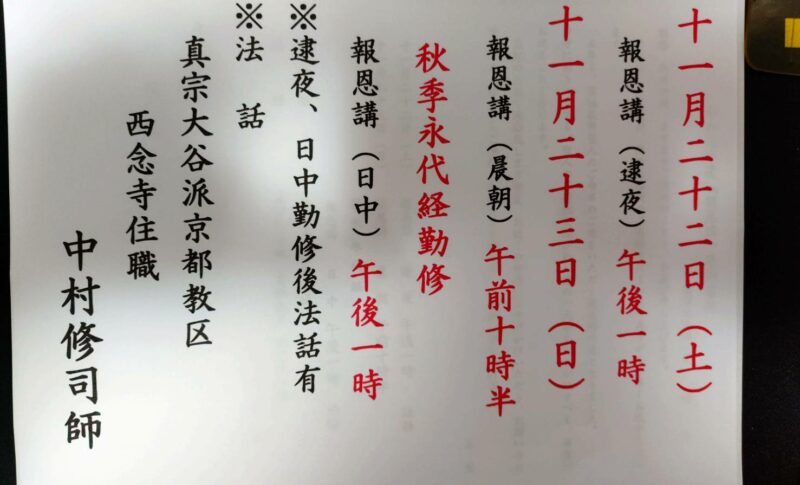 十一月二十二日（土）
報恩講（逮夜）午後一時
十一月二十三日（日）
報恩講（晨朝）午前十時半
秋季永代経勤修
報恩講（日中）午後一時
※逮夜、日中勤修後法話有
※法　話
真宗大谷派京都教区
西念寺住職
中村修司師